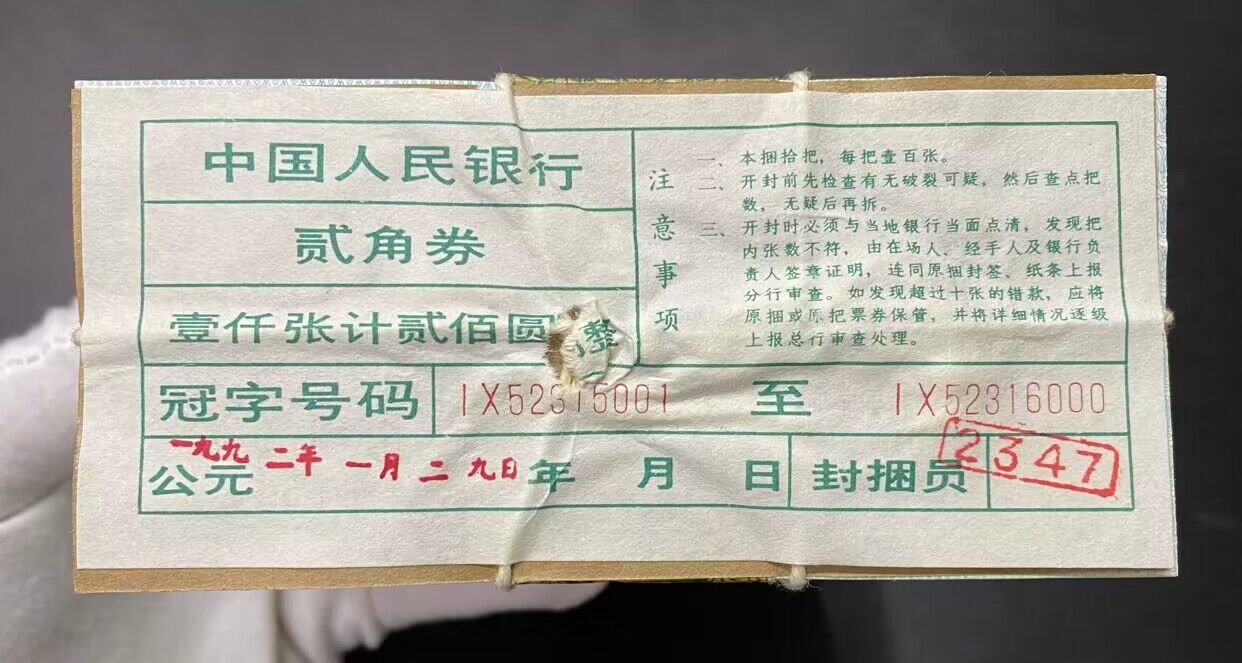 中国人民银行
贰角券
壹仟张计贰佰圆整
注意事项
一、本捆拾把，每把壹百张。
二、开封前先检查有无破裂可疑，然后查点把
数，无疑后再拆。
三、开封时必须与当地银行当面点清，发现把
内张数不符，由在场人、经手人及银行负
责人签章证明，连同原捆封签、纸条上报
分行审查。如发现超过十张的错款，应将
原捆或原把票券保管，并将详细情况逐级
上报总行审查处理。
冠字号码 IX52315001 至 IX52316000
一九九二年一月二九日
公元 年 月 日 封捆员 2347